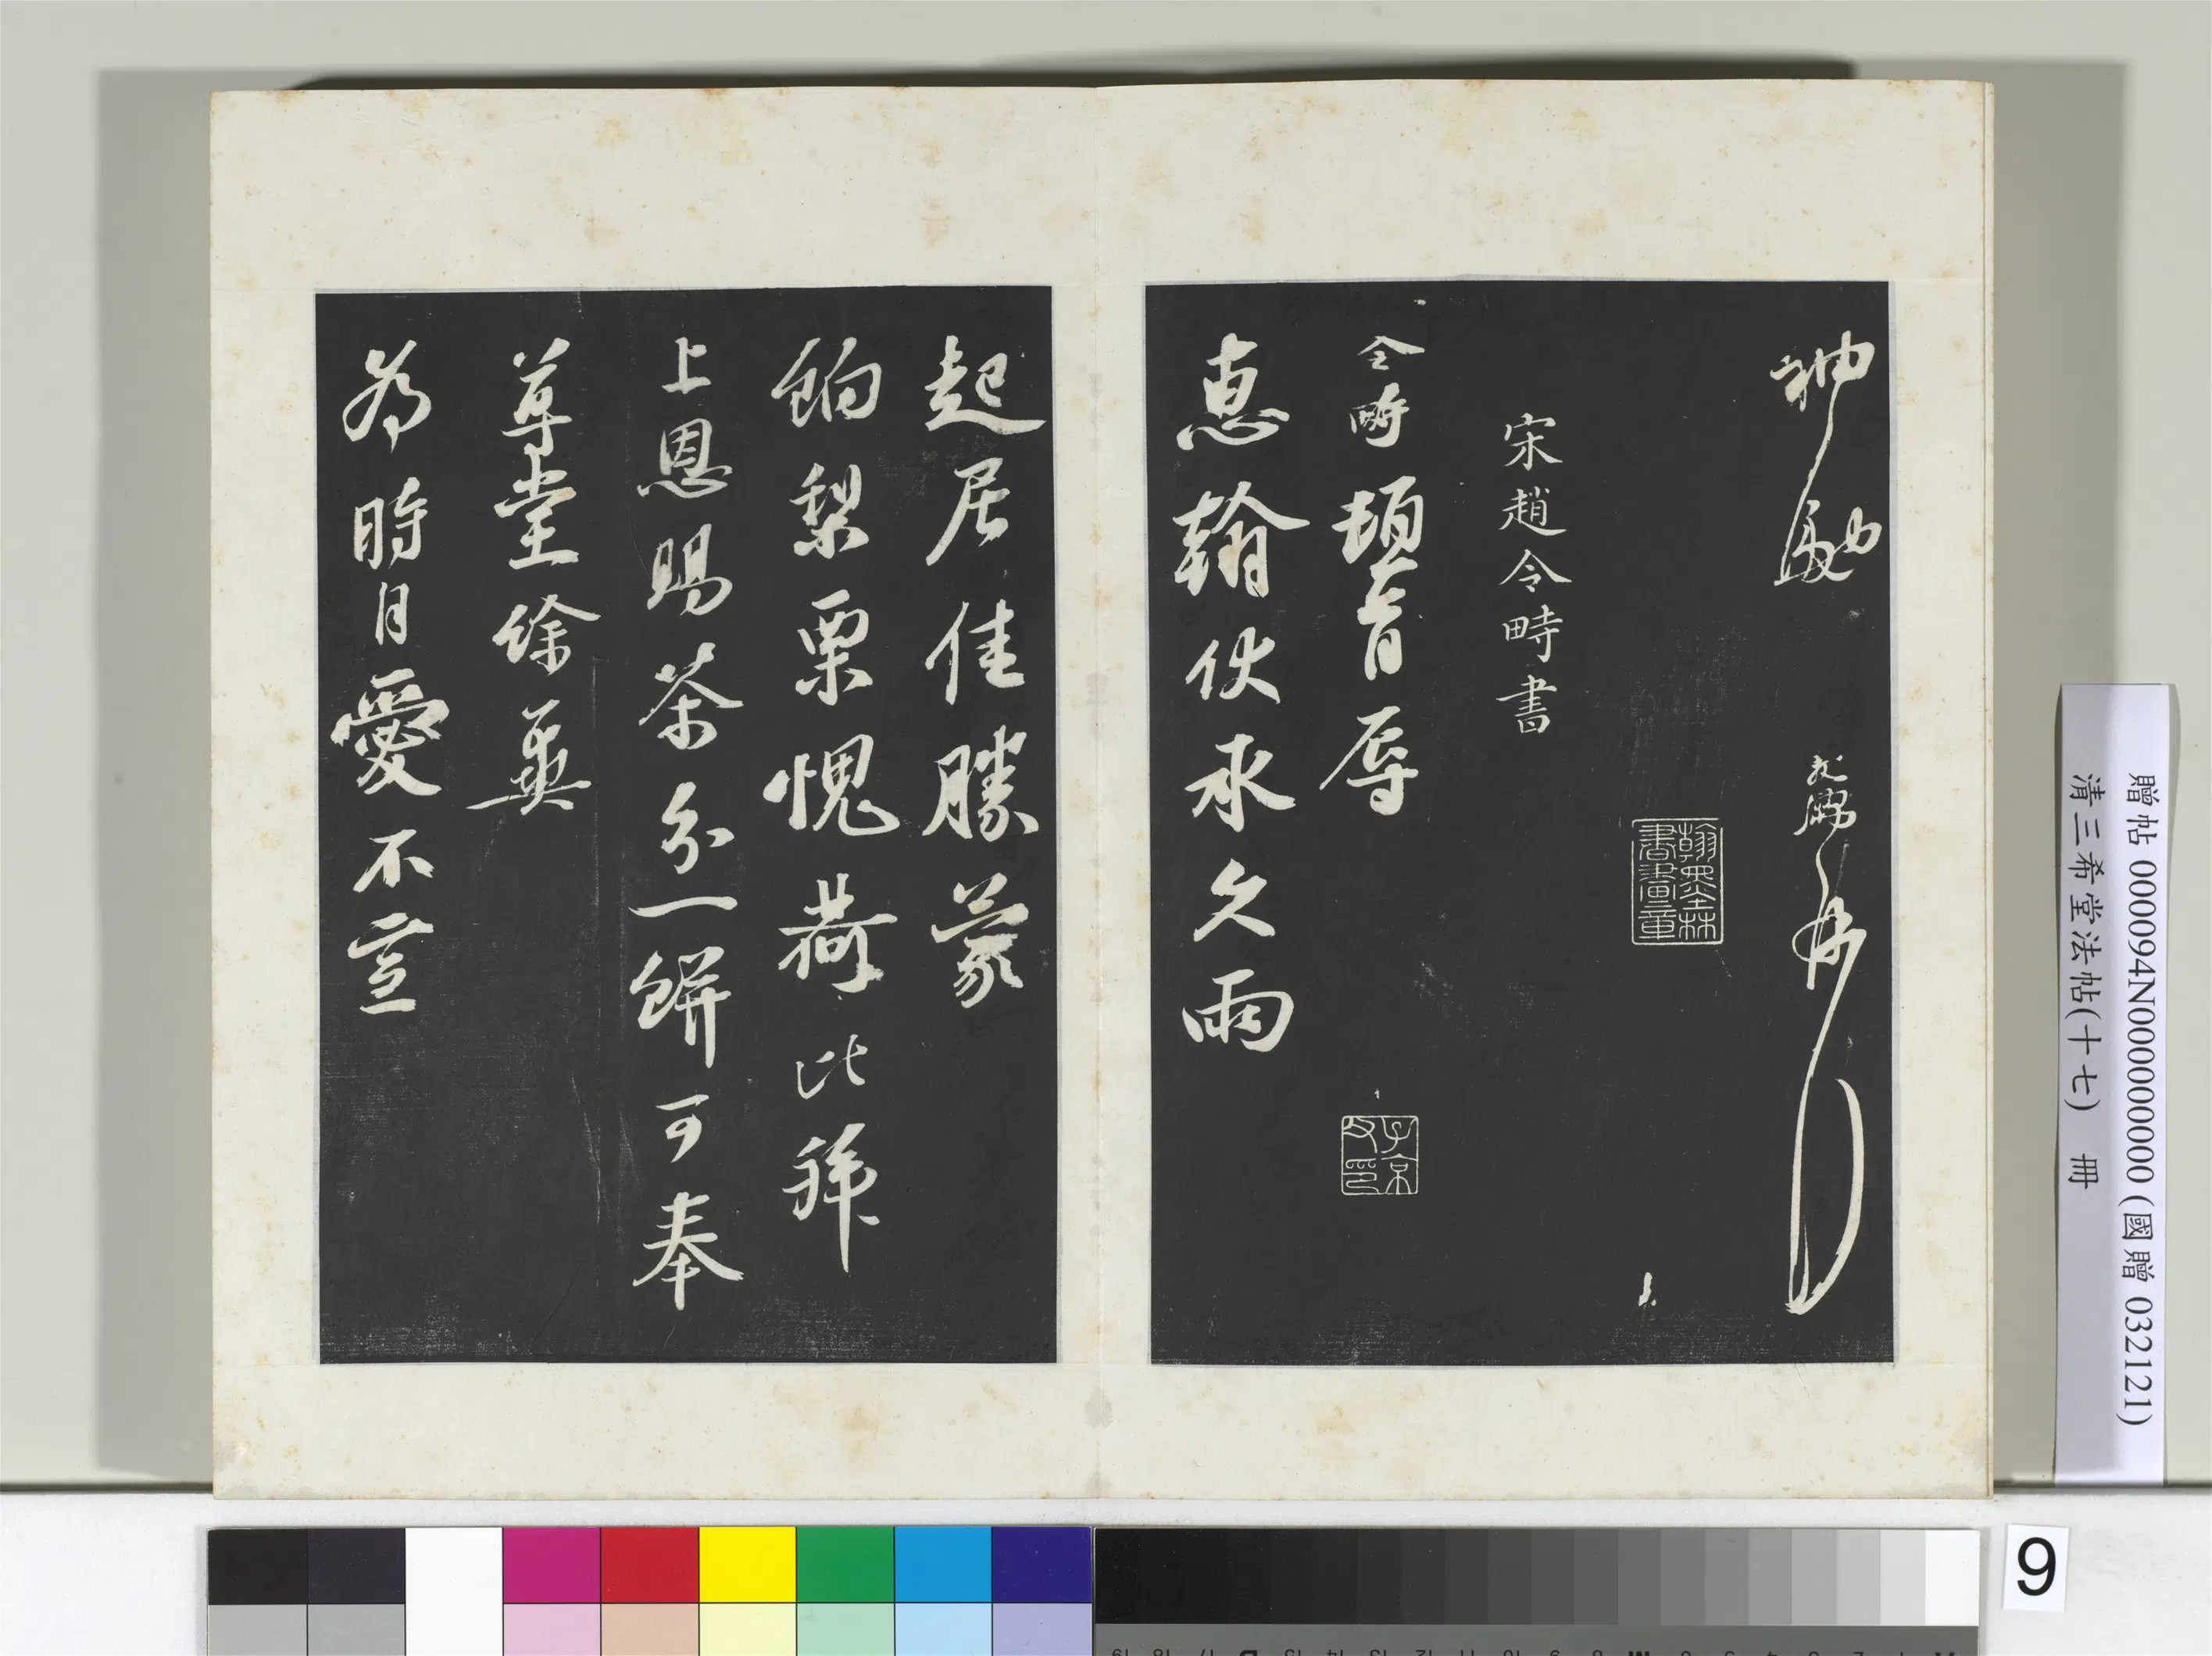 神助
宋趙令畤書
令畤頓首辱
惠翰伏承久雨
起居佳勝蒙
餉梨栗愧荷比拜
上恩賜茶分一餅可奉
尊堂餘冀
為時自愛不宣
翰墨林書畫章
子京父印
贈帖 000094N000000000 (國贈 032121)
清三希堂法帖(十七) 冊
9